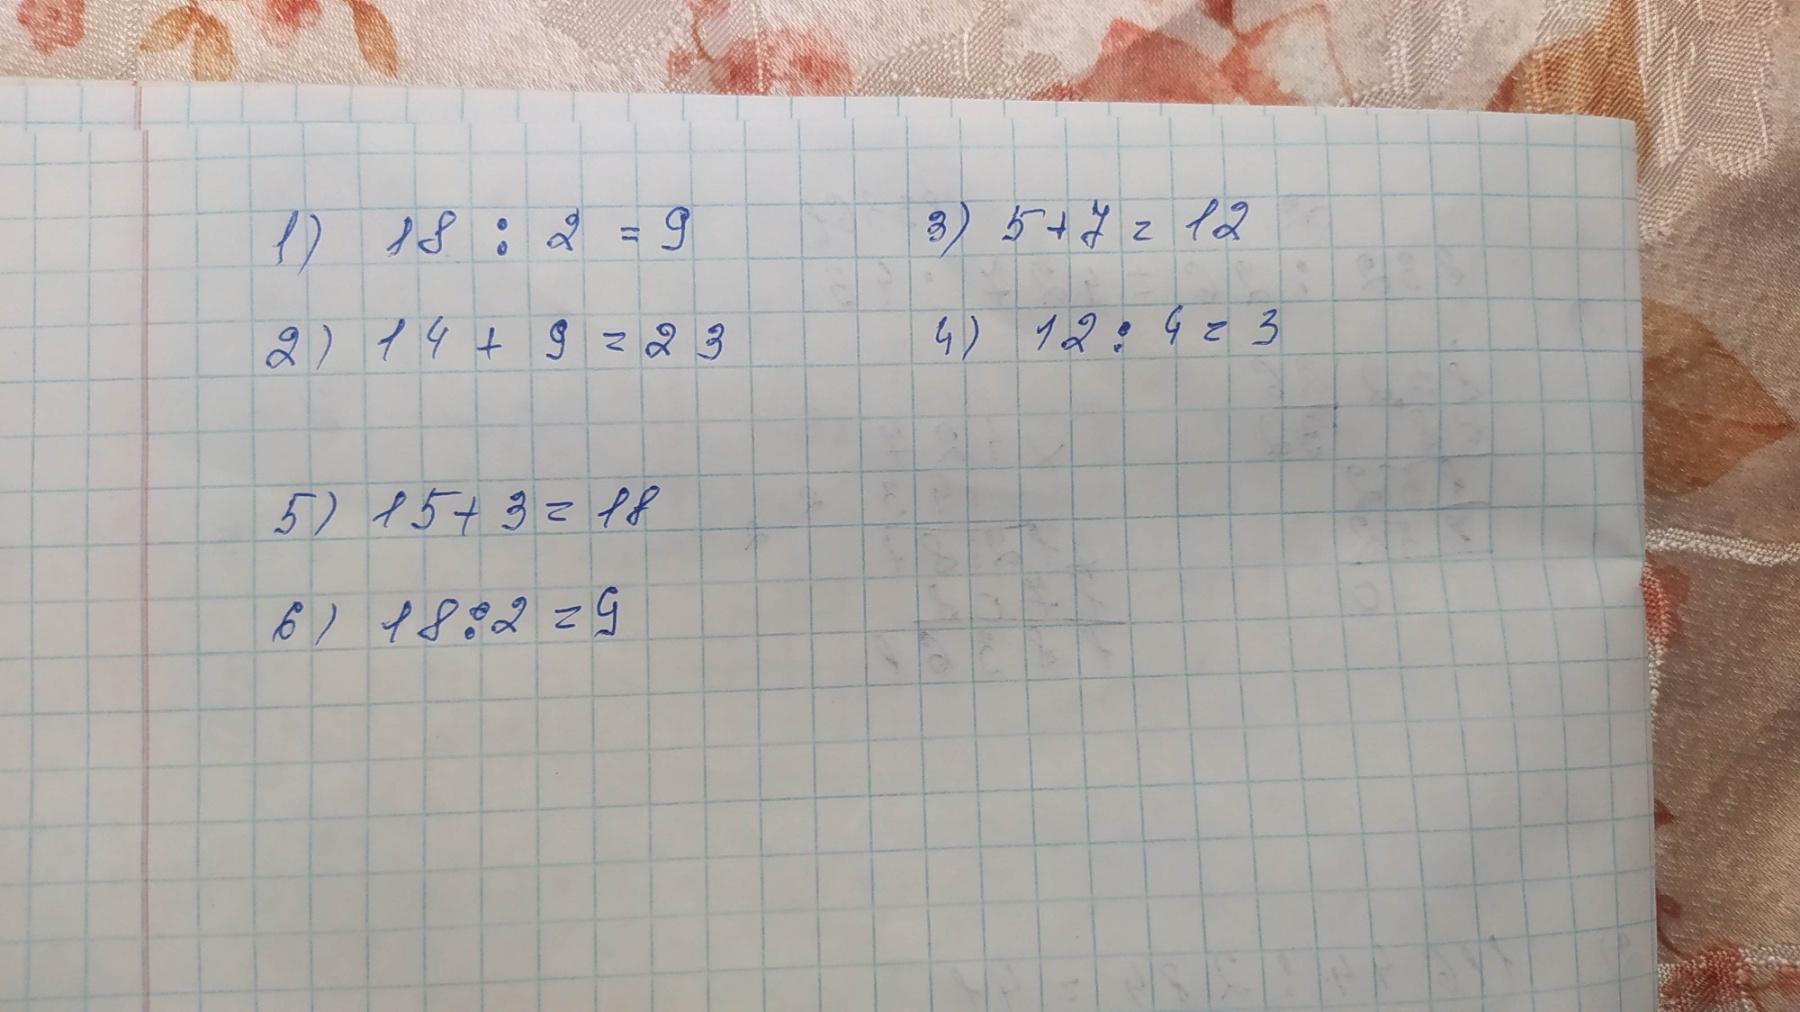 1) 18 : 2 = 9
2) 14 + 9 = 23
3) 5+7 = 12
4) 12 : 4 = 3
5) 15+3=18
6) 18:2=9